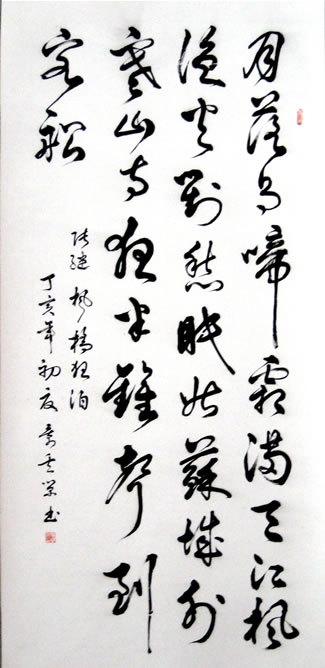 月落烏啼霜滿天江楓
漁火對愁眠姑蘇城外
寒山寺夜半鐘聲到
客船
張繼 楓橋夜泊
丁亥年初夏 书